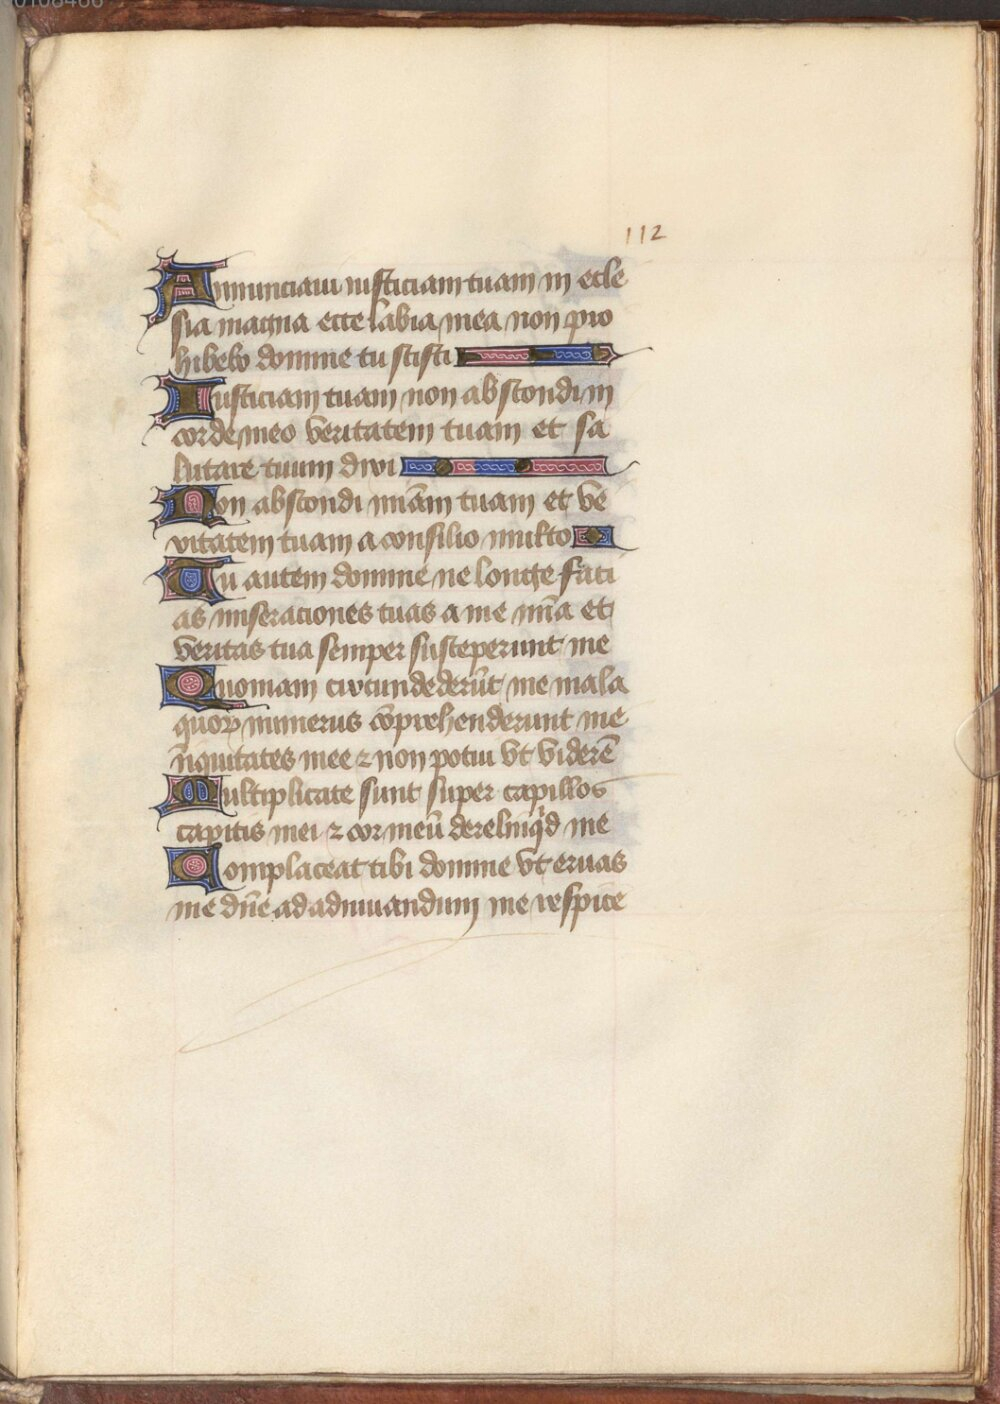 112
Annunciaui iusticiam tuam in eccle
sia magna ecce labia mea non pro
hibebo domine tu scisti
Iusticiam tuam non abscondi in
corde meo veritatem tuam et sa
lutare tuum dixi
Non abscondi mĩam tuam et ve
ritatem tuam a consilio multo
Tu autem domine ne longe faci
as miseraciones tuas a me mĩa et
veritas tua semper susceperunt me
Quoniam circumdederũt me mala
quoꝝ numerus cõprehenderunt me
iniquitates mee ⁊ non potui vt viderẽ
Multiplicate sunt super capillos
capitis mei ⁊ cor meũ dereliquid me
Complaceat tibi domine vt eruas
me dñe ad adiuuandum me respice